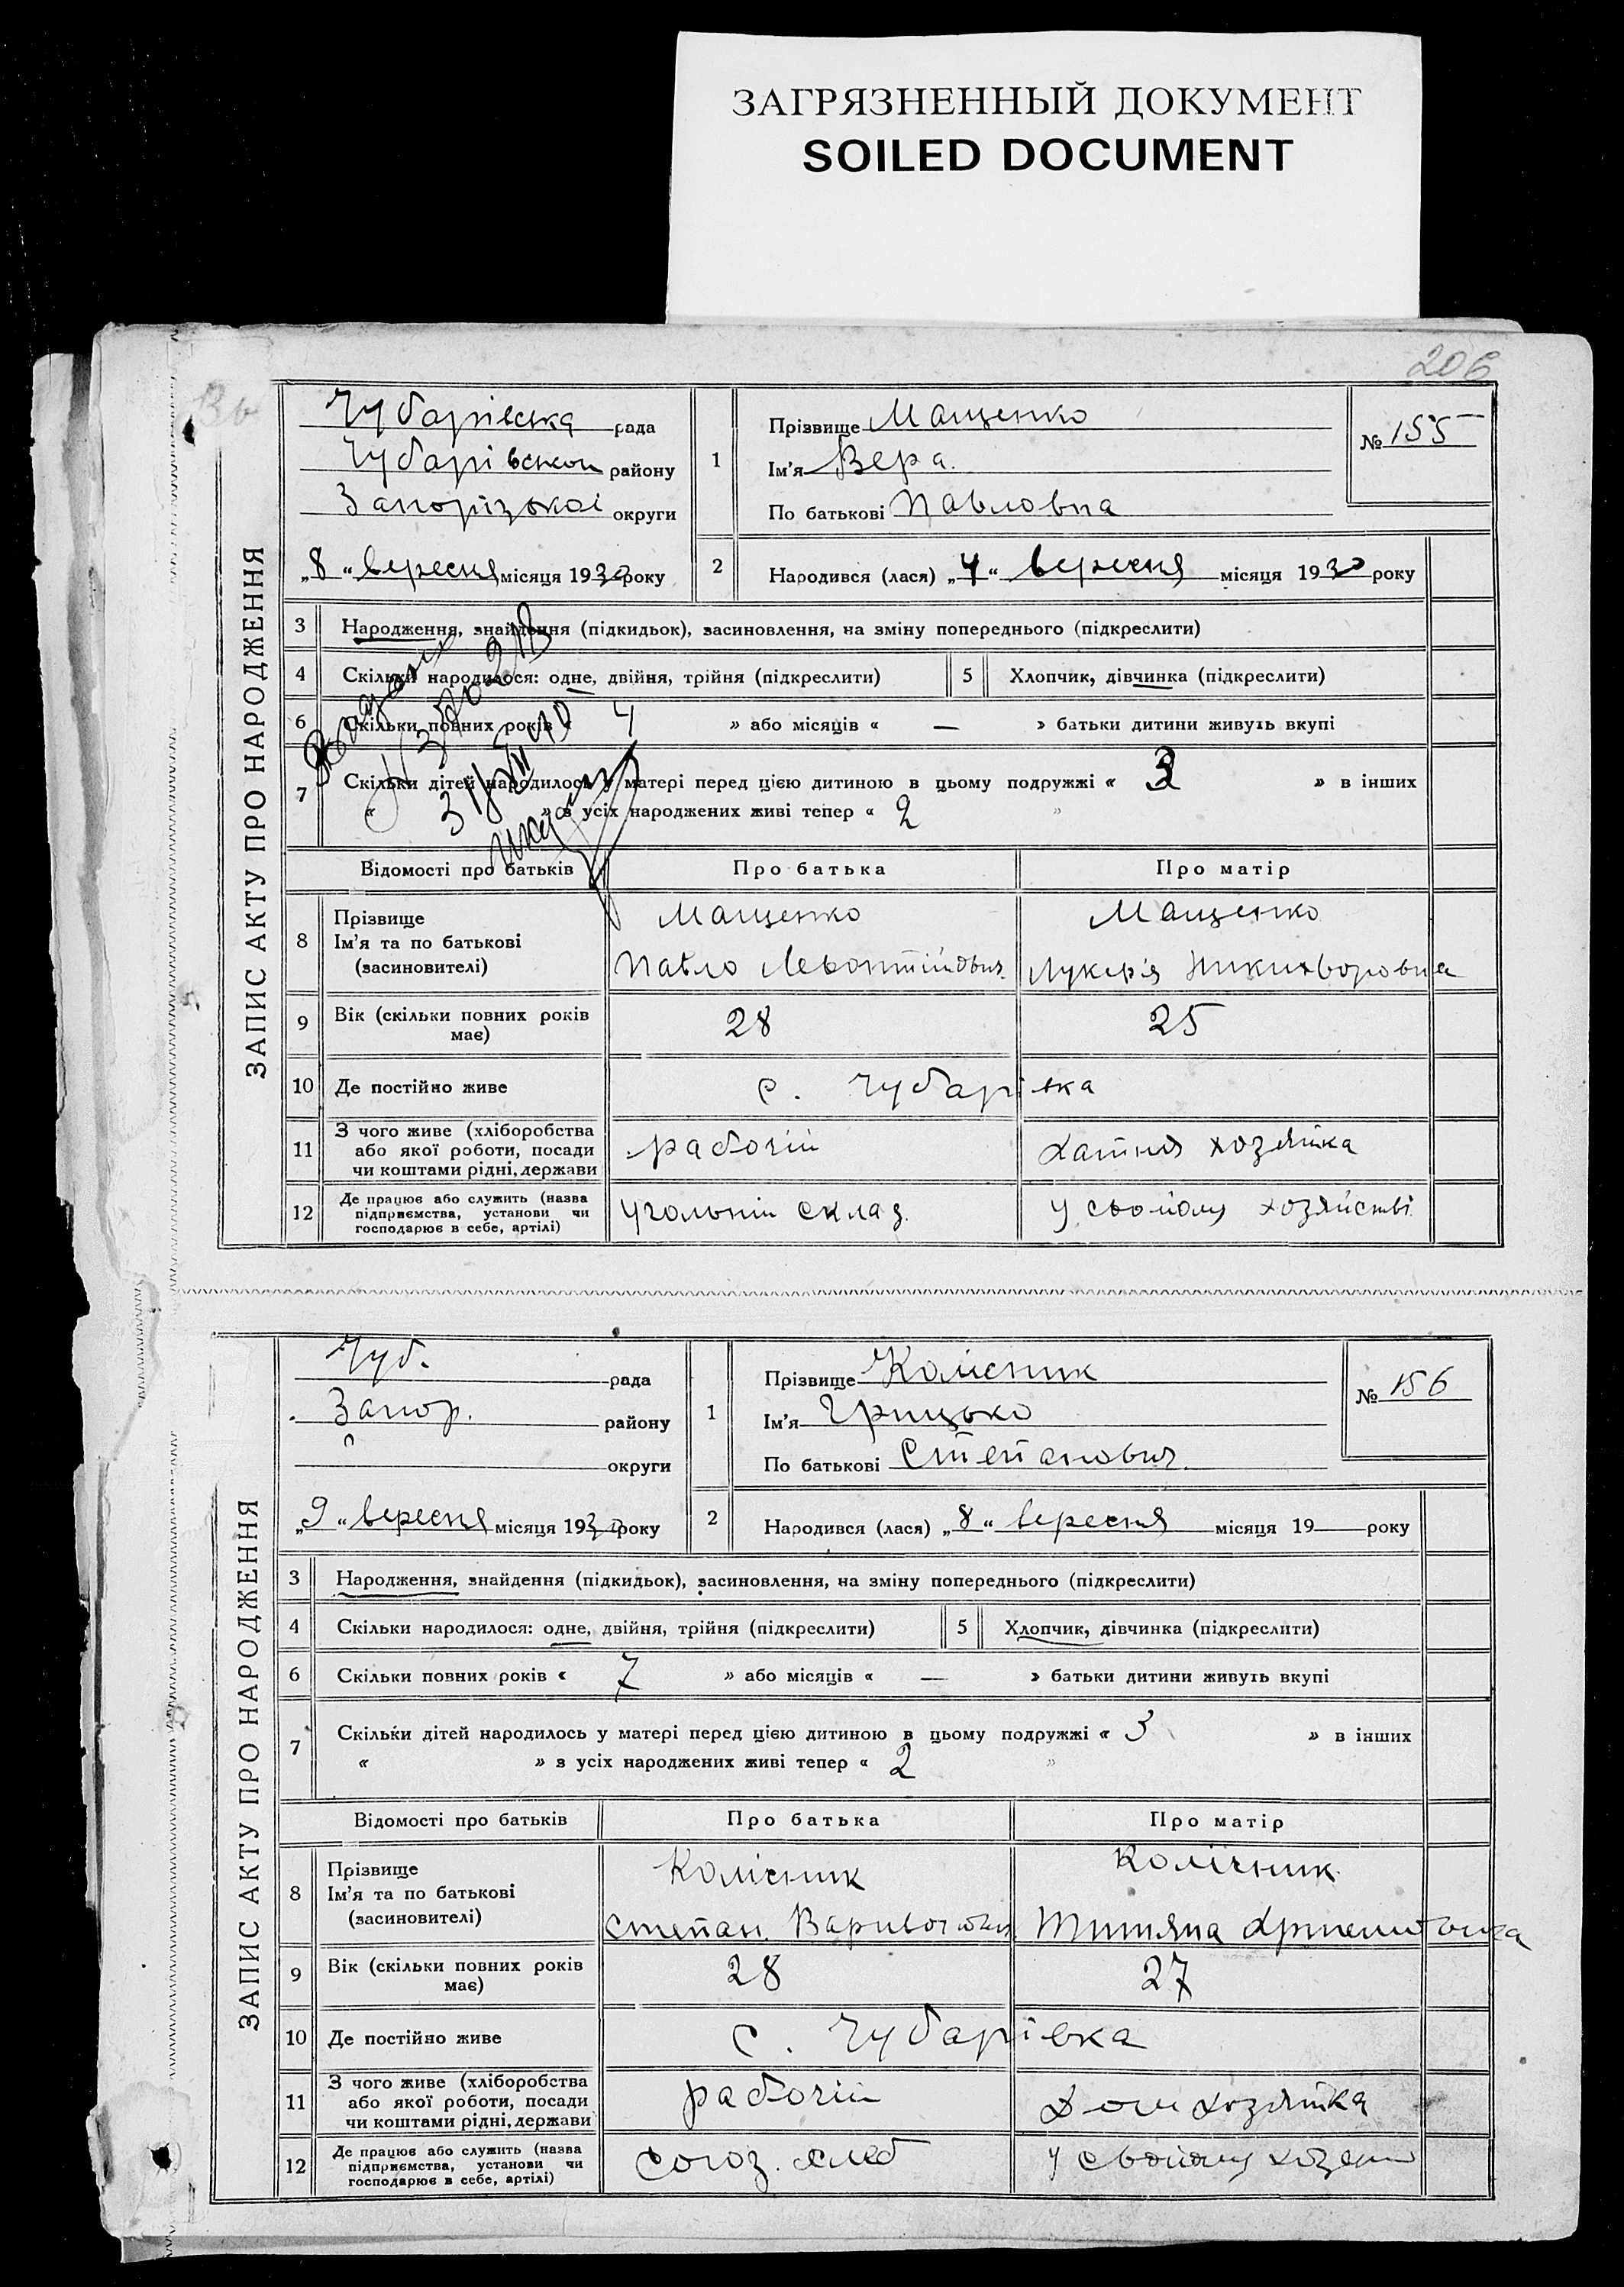 ЗАГРЯЗНЕННЫЙ ДОКУМЕНТ
SOILED DOCUMENT
206
ЗАПИС АКТУ ПРО НАРОДЖЕННЯ
Чубарівська рада
Чубарівськои району
Запорізькоі округи
„8“ вересня місяця 1930 року
1
Прізвище Мащенко
Ім'я Вера.
По батькові Павловна
№ 155
2
Народився (лася) „4“ вересня місяця 1930 року
3 Народження, знайдення (підкидьок), засиновлення, на зміну попереднього (підкреслити)
4 Скільки народилося: одне, двійня, трійня (підкреслити) 5 Хлопчик, дівчинка (підкреслити)
6 Скільки повних років « 4 » або місяців « — » батьки дитини живуть вкупі
7 Скільки дітей народилось у матері перед цією дитиною в цьому подружжі « 3 » в інших
« » з усіх народжених живі тепер « 2 »
Відомості про батьків Про батька Про матір
8 Прізвище Мащенко Мащенко
Ім'я та по батькові
(засиновителі) Павло Левонтійович Лукеря Никихворовна
9 Вік (скільки повних років має) 28 25
10 Де постійно живе с. Чубарівка
11 З чого живе (хліборобства
або якої роботи, посади
чи коштами рідні, держави рабочій хатня хозяйка
12 Де працює або служить (назва
підприємства, установи чи
господарює в себе, артілі) Угольний склад. У свойому хозяйстві
ЗАПИС АКТУ ПРО НАРОДЖЕННЯ
Чуб. рада
Запор. району
округи
„9“ вересня місяця 1930 року
1
Прізвище Колісник
Ім'я Грицько
По батькові Степанович
№ 156
2
Народився (лася) „8“ вересня місяця 19 року
3 Народження, знайдення (підкидьок), засиновлення, на зміну попереднього (підкреслити)
4 Скільки народилося: одне, двійня, трійня (підкреслити) 5 Хлопчик, дівчинка (підкреслити)
6 Скільки повних років « 7 » або місяців « — » батьки дитини живуть вкупі
7 Скільки дітей народилось у матері перед цією дитиною в цьому подружжі « 3 » в інших
« » з усіх народжених живі тепер « 2 »
Відомості про батьків Про батька Про матір
8 Прізвище Колісник Колісник
Ім'я та по батькові
(засиновителі) Степан
9 Вік (скільки повних років має) 28 27
10 Де постійно живе с. Чубарівка
11 З чого живе (хліборобства
або якої роботи, посади
чи коштами рідні, держави рабочій Дом хозяйка
12 Де працює або служить (назва
підприємства, установи чи
господарює в себе, артілі) Союз. хлеб У свойому